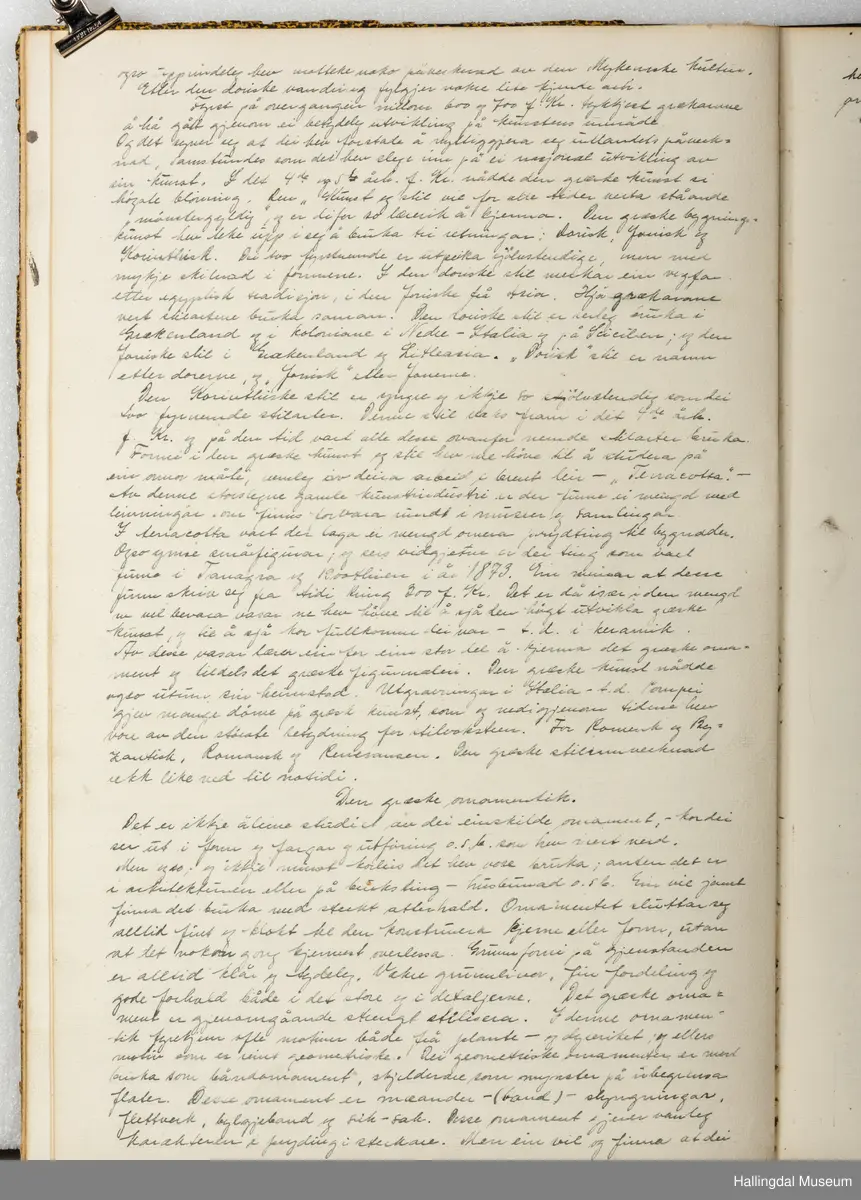 ogso uppindeleg hev motteke noko påverknad av den Mykenske kultur.
Etter den doriske vandring fylgjer nokre lite kjende årh.
Fyrst på overgangen millom 600 og 700 f. Kr. tykkjest grækarane
å ha gått gjenom ei betydeleg utvikling på kunstens umråde.
Og det syner seg at dei hev forstade å nyttiggjera seg utlandets påverk=
nad, samstundes som dei hev slege inn på ei nasjonal utvikling av
sin kunst. I det 4de og 5te årh. f. Kr. nådde den græske kunst si
högste blöming. Den kunst og stil vil for alle tider verta ståande
"mönstergyldig", og er difor so lærerik å kjenna. Den græske bygning-
kunst hev teke upp i seg å bruka tri retningar: Dorisk, Jonisk og
Korinthisk. Dei two fyrstnemde er utprega sjölvstendige, men med
mykje skilnad i formene. I den doriske stil merkar ein vegfa
etter egyptisk tradisjon, i den Joniske frå Asia. Hjå grækarane
vert stilartene bruka saman. Den doriske stil er serleg bruka i
Grækenland og i koloniane i Nedre-Italia og på Sicilien; og den
Joniske stil i Grækenland og Litleasia. "Dorisk" stil er namn
etter dorerne, og "Jonisk" etter Jonerne.
Den Korinthiske stil er yngre og ikkje so sjölvstendig som dei
two fyrnemde stilarter. Denne stil voks fram i det 4de årh.
f. Kr. og på den tid vart alle desse ovanfor nemde stilarter bruka.
Formi i den græske kunst og stil hev me höve til å studera på
ein onnor måte, nemleg av deira arbeid i brent leir - "Terracotta". -
Av denne storslegne gamle kunstindustri er der funne ei mengd med
leivningar som finns forvara rundt i museer og samlingar.
I terracotta vart det laga ei mengd omera prydting til bygnader.
Ogso ymse småfigurar; og sers vidgjetne er dei ting som vart
funne i Tanagra og Bootlien i år 1873. Ein meinar at desse
funn skriv seg frå tidi kring 300 f. Kr. Det er då især i den mengd
av vel bevara vasar me hev höve til å sjå den högt utvikla græske
kunst, og til å sjå kor fullkomne dei var - t. d. i keramik.
Av desse vasar lærer ein for ein stor del å kjenna det græske orna-
ment og tildels det græske figurmaleri. Den græske kunst nådde
ogso utum sin heimstad. Utgravningar i Italia - t. d. Pompei
gjev mange döme på græsk kunst, som og nedigjenom tidene hev
vore av den störste betydning for stilveksteren. For Romersk og By=
zantisk, Romansk og Renesansen. Den græske stils innverknad
rekk like ned til notidi.
Den græske ornamentik.
Det er ikkje åleine studiet av dei einskilde ornament, - kor dei
ser ut i form og fargar og utföring o. s. b. som hev vert verd.
Men ogso; og ikkje minst korleis det hev vore bruka; anten det er
i arkitekturen eller på bruksting - husbunad o. s. b. Ein vil jamt
finna det bruka med sterkt atterhald. Ornamentet sluttar seg
alltid fint og klokt til den konstruera kjerne eller form, utan
at det nokon gong kjennest overlessa. Grunnformi på gjenstanden
er alltid klår og tydeleg. Vakre grunnlinor, fin fordeling og
gode forhold både i det store og i detaljerne. Det græske orna=
ment er gjenomgåande strengt stilisera. I denne ornamen-
tik fyrekjem ofte motiver både frå plante- og dyreriket, og ellers
motiv som er reint geometriske. Dei geometriske ornamenter er mest
bruka som båndornament, skjeldnare som mynster på ubegrensa
flater. Desse ornament er mæander - (band) - slyngningar,
flettverk, bylgjeband og sik-sak. Desse ornament gjerer vanleg
karakteren i prydingi sterkare. Men ein vil og finna at dei
Hallingdal Museum